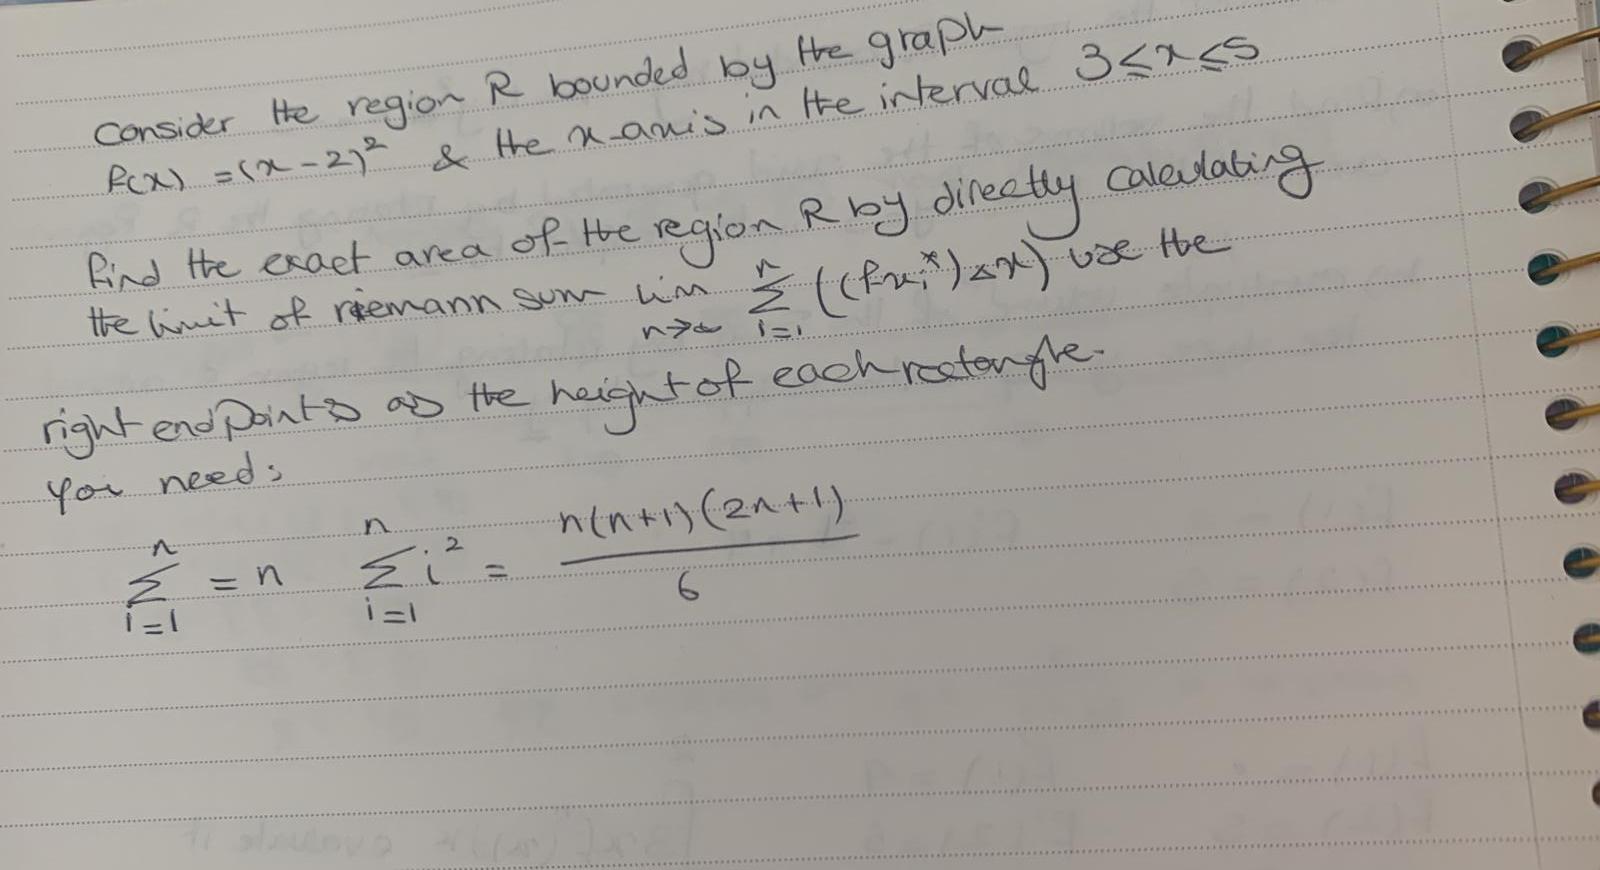 Consider the region R bounded by the graph
f(x) = (x - 2)² & the x-axis in the interval 3 ≤ x ≤ 5
find the exact area of the region R by directly calculating
the limit of riemann sum lim n→∞ n Σ i=1 ((fxᵢ*) △x) use the
right endpoints as the height of each rectangle.
you need:
n Σ i=1 = n    n Σ i=1 i² = n(n+1)(2n+1) / 6